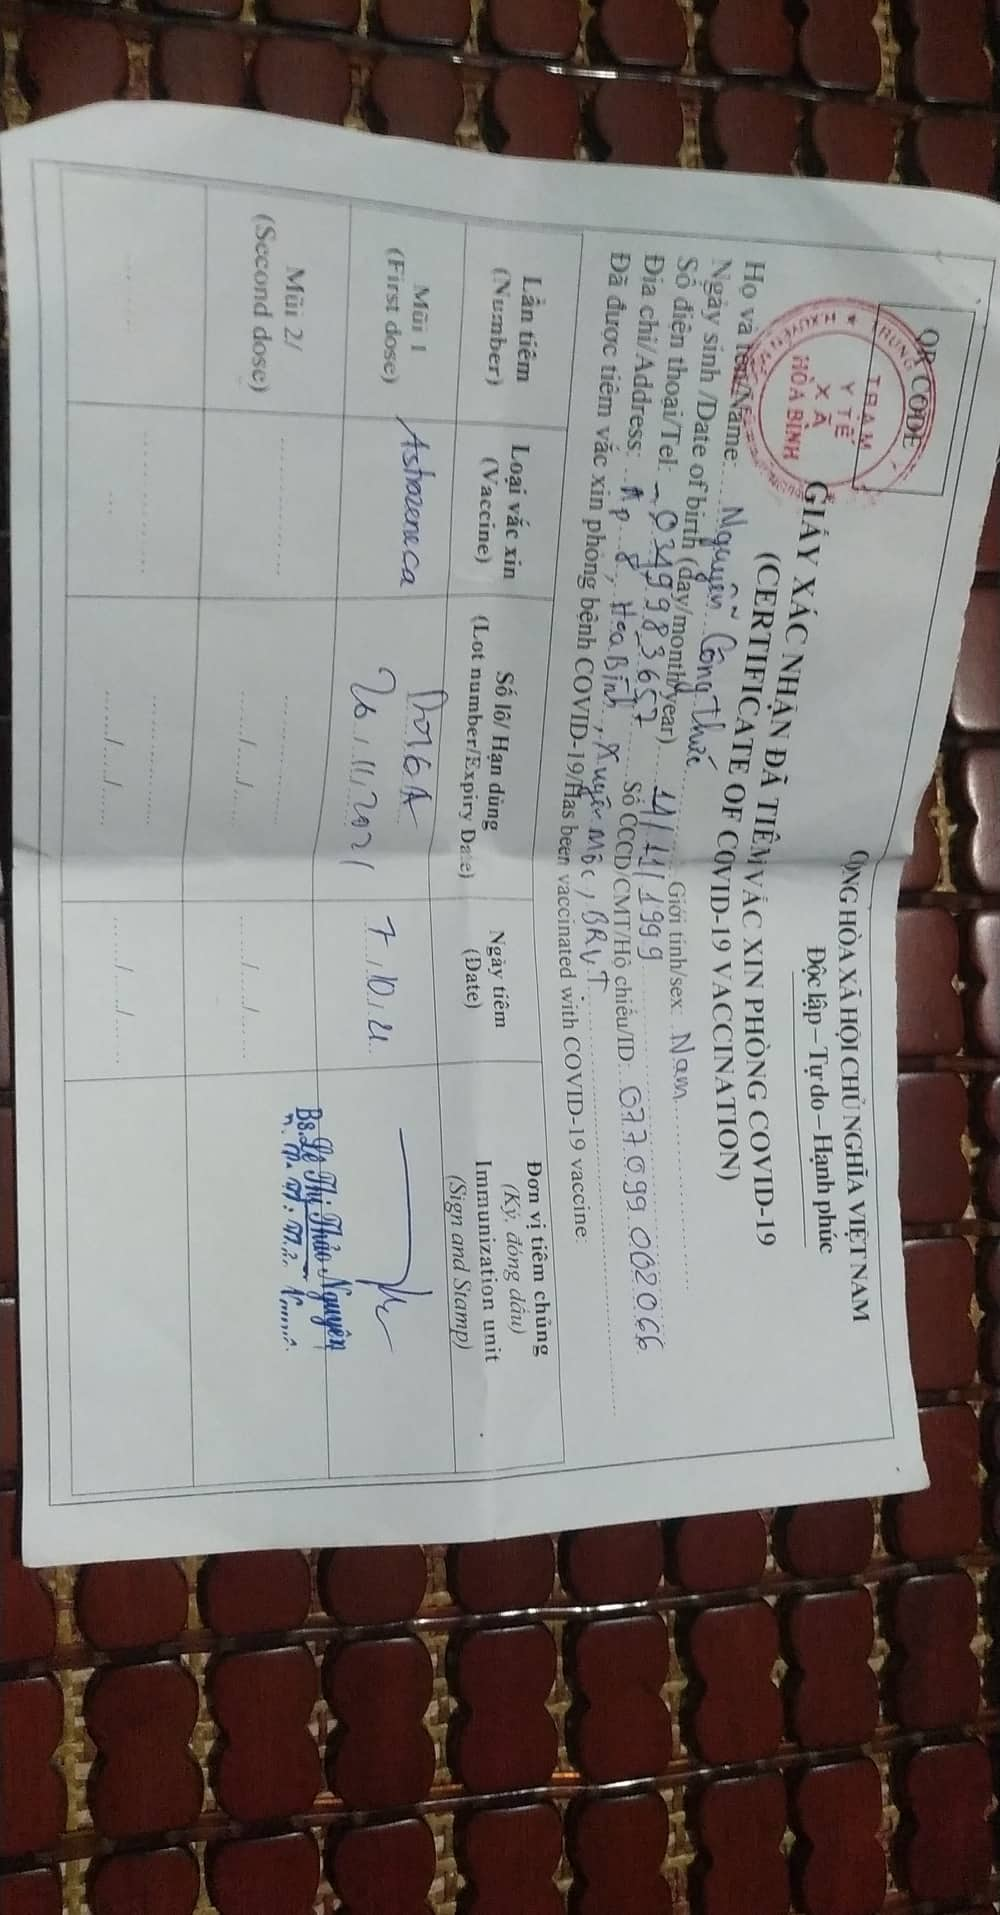 CỘNG HÒA XÃ HỘI CHỦ NGHĨA VIỆT NAM
Độc lập – Tự do – Hạnh phúc
QR CODE
TRẠM
Y TẾ
XÃ
HÒA BÌNH
GIẤY XÁC NHẬN ĐÃ TIÊM VẮC XIN PHÒNG COVID-19
(CERTIFICATE OF COVID-19 VACCINATION)
Họ và tên/Name: Nguyễn Công Thức
Ngày sinh /Date of birth (day/month/year) 11/11/1999 Giới tính/sex: Nam
Số điện thoại/Tel: 0349983657 Số CCCD/CMT/Hộ chiếu/ID: 077099002066
Địa chỉ/Address: Ấp 8, Hòa Bình, Xuyên Mộc, BRVT
Đã được tiêm vắc xin phòng bệnh COVID-19/Has been vaccinated with COVID-19 vaccine:
Lần tiêm (Number) Loại vắc xin (Vaccine) Số lô/ Hạn dùng (Lot number/Expiry Date) Ngày tiêm (Date) Đơn vị tiêm chủng (Ký, đóng dấu) Immunization unit (Sign and Stamp)
Mũi 1 (First dose) Astrazeneca 26/11/2021 7/10/21
Bs. Lê Thị Thảo Nguyên
Mũi 2/ (Second dose)